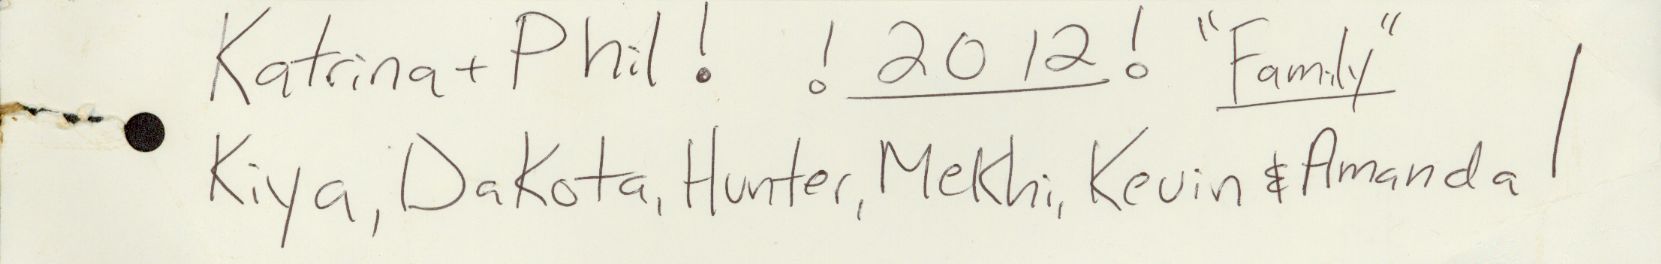 Katrina + Phil! ! 2012! "Family"
Kiya, Dakota, Hunter, Mekhi, Kevin & Amanda!